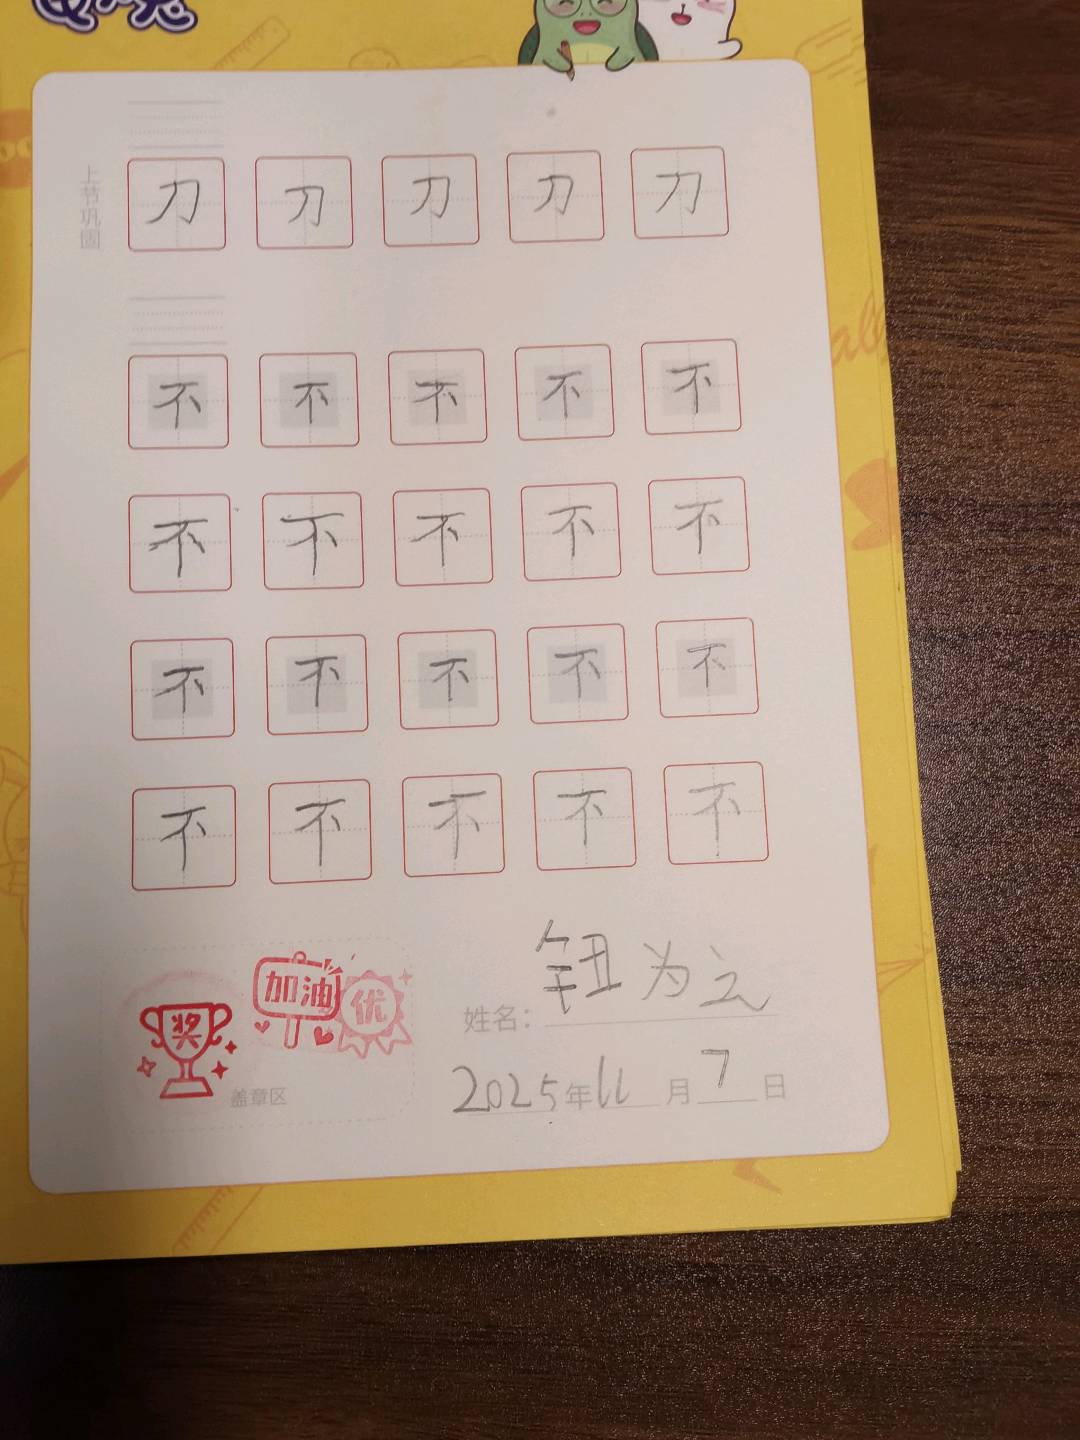 上节巩固
刀 刀 刀 刀 刀
不 不 不 不 不
不 不 不 不 不
不 不 不 不 不
不 不 不 不 不
加油
优
奖
盖章区
姓名：钮为之
2025年11月7日